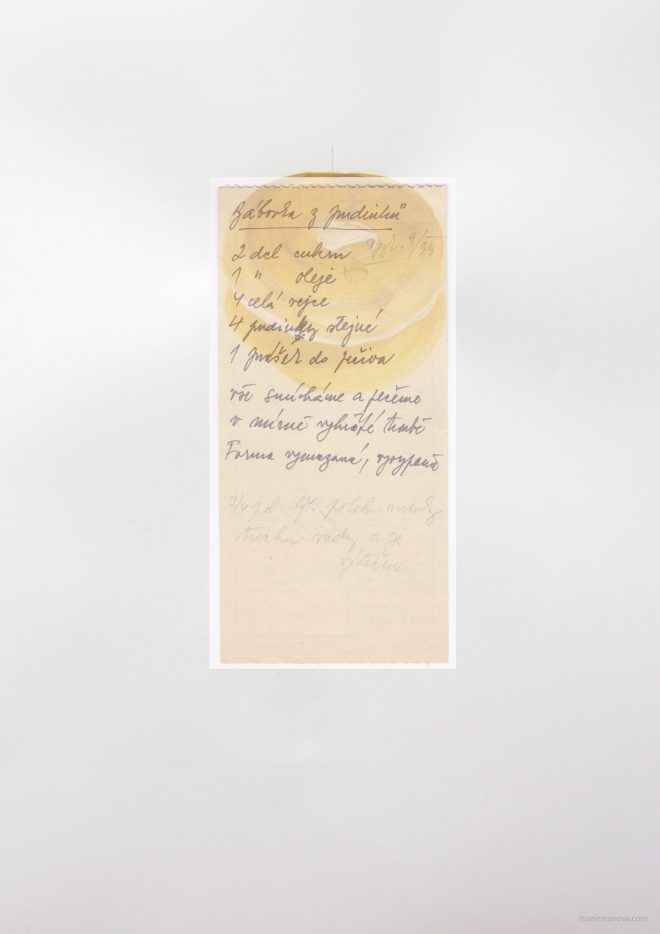 Báborka z pudinků
vyzk. 9/95
2 del cukru
1 " oleje
4 celá vejce
4 pudinky stejné
1 prášek do pečiva
vše smícháme a pečeme
v mírně vyhřáté troubě
Forma vymazaná, vysypaná
trochu vody a je
výtečná
marievranova.com